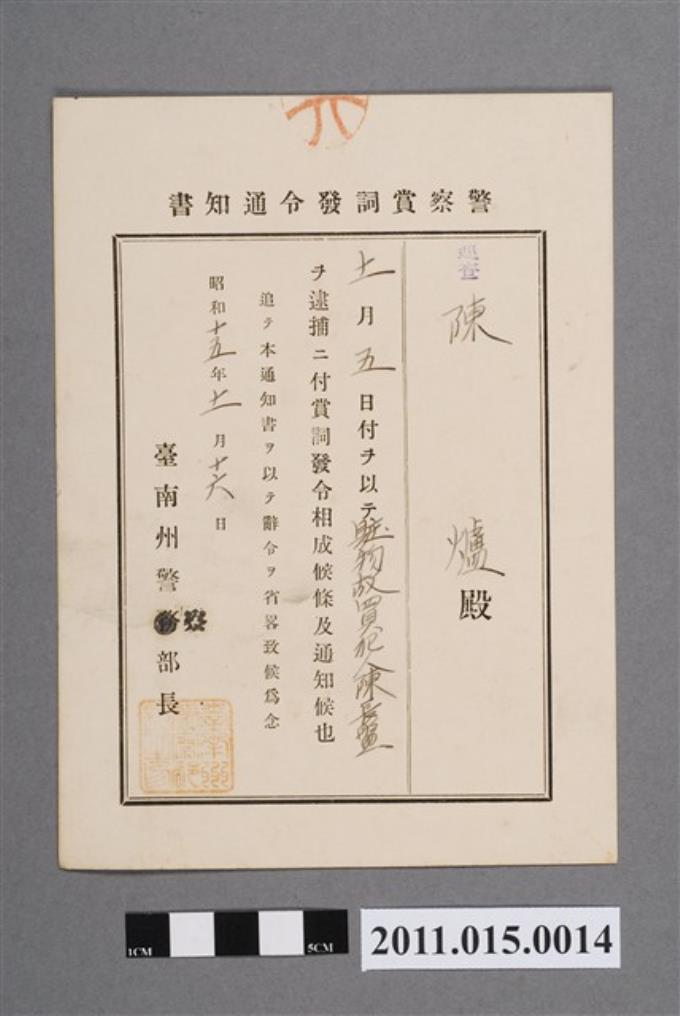 警察賞詞發令通知書
巡査
陳 爐殿
十一月五日付ヲ以テ贓物故買犯人陳長盧
ヲ逮捕ニ付賞詞發令相成候條及通知候也
追テ本通知書ヲ以テ辭令ヲ省畧致候爲念
昭和十五年十一月十六日
臺南州警察部長
1CM
5CM
2011.015.0014